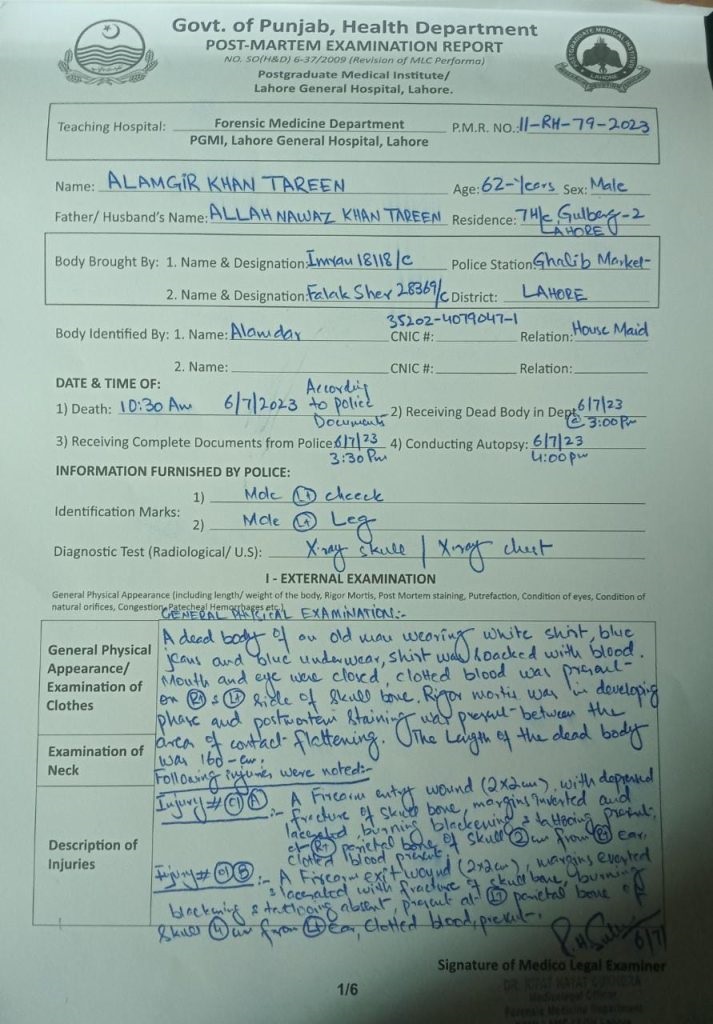 Govt. of Punjab, Health Department
POST-MARTEM EXAMINATION REPORT
NO. SO(H&D) 6-37/2009 (Revision of MLC Performa)
Postgraduate Medical Institute/
Lahore General Hospital, Lahore.
POSTGRADUATE MEDICAL INSTITUTE
LAHORE
Teaching Hospital: Forensic Medicine Department P.M.R. NO.: 11-RH-79-2023
PGMI, Lahore General Hospital, Lahore
Name: ALAMGIR KHAN TAREEN Age: 62-Years Sex: Male
Father/ Husband's Name: ALLAH NAWAZ KHAN TAREEN Residence: 7H/c, Gulberg-2
LAHORE
Body Brought By: 1. Name & Designation: Imran 18118/c Police Station: Ghalib Market
2. Name & Designation: Falak Sher 28369/c District: LAHORE
35202-4079047-1
Body Identified By: 1. Name: Alamdar CNIC #: Relation: House Maid
2. Name: CNIC #: Relation:
DATE & TIME OF:
1) Death: 10:30 Am 6/7/2023 According to police Documents 2) Receiving Dead Body in Dept 6/7/23 @ 3:00 Pm
3) Receiving Complete Documents from Police: 6/7/23 3:30 Pm 4) Conducting Autopsy: 6/7/23 4:00 pm
INFORMATION FURNISHED BY POLICE:
Identification Marks: 1) Mole (Lt) cheeck
2) Mole (Lt) Leg
Diagnostic Test (Radiological/ U.S): X-ray skull / X-ray chest
I - EXTERNAL EXAMINATION
General Physical Appearance (including length/ weight of the body, Rigor Mortis, Post Mortem staining, Putrefaction, Condition of eyes, Condition of
natural orifices, Congestion, Petecheal Hemorrhages etc.)
GENERAL PHYSICAL EXAMINATION:-
General Physical
Appearance/
Examination of
Clothes
A dead body of an old man wearing white shirt, blue
jeans and blue underwear, shirt was soacked with blood.
Mouth and eye were closed, clotted blood was present
on (Rt) & (Lt) side of skull bone. Rigor mortis was in developing
phase and postmortem staining was present between the
area of contact flattening. The Length of the dead body
was 160-cm.
Examination of
Neck
Following injuries were noted:-
Description of
Injuries
Injury # (1) (A) :- A Firearm entry wound (2x2cm), with depressed
fracture of skull bone, margins inverted and
lacerated, burning blackening & tattooing present,
at (Rt) parietal bone of skull (2) cm from (Rt) ear,
clotted blood present.
Injury # (1) (B) :- A Firearm exit wound (2x2cm), margins everted
& lacerated with fracture of skull bone, burning
blackening & tattooing absent, present at (Lt) parietal bone of
skull (4) cm from (Lt) ear, clotted blood, present.
6/7/
Signature of Medico Legal Examiner
Forensic Medicine Department
1/6